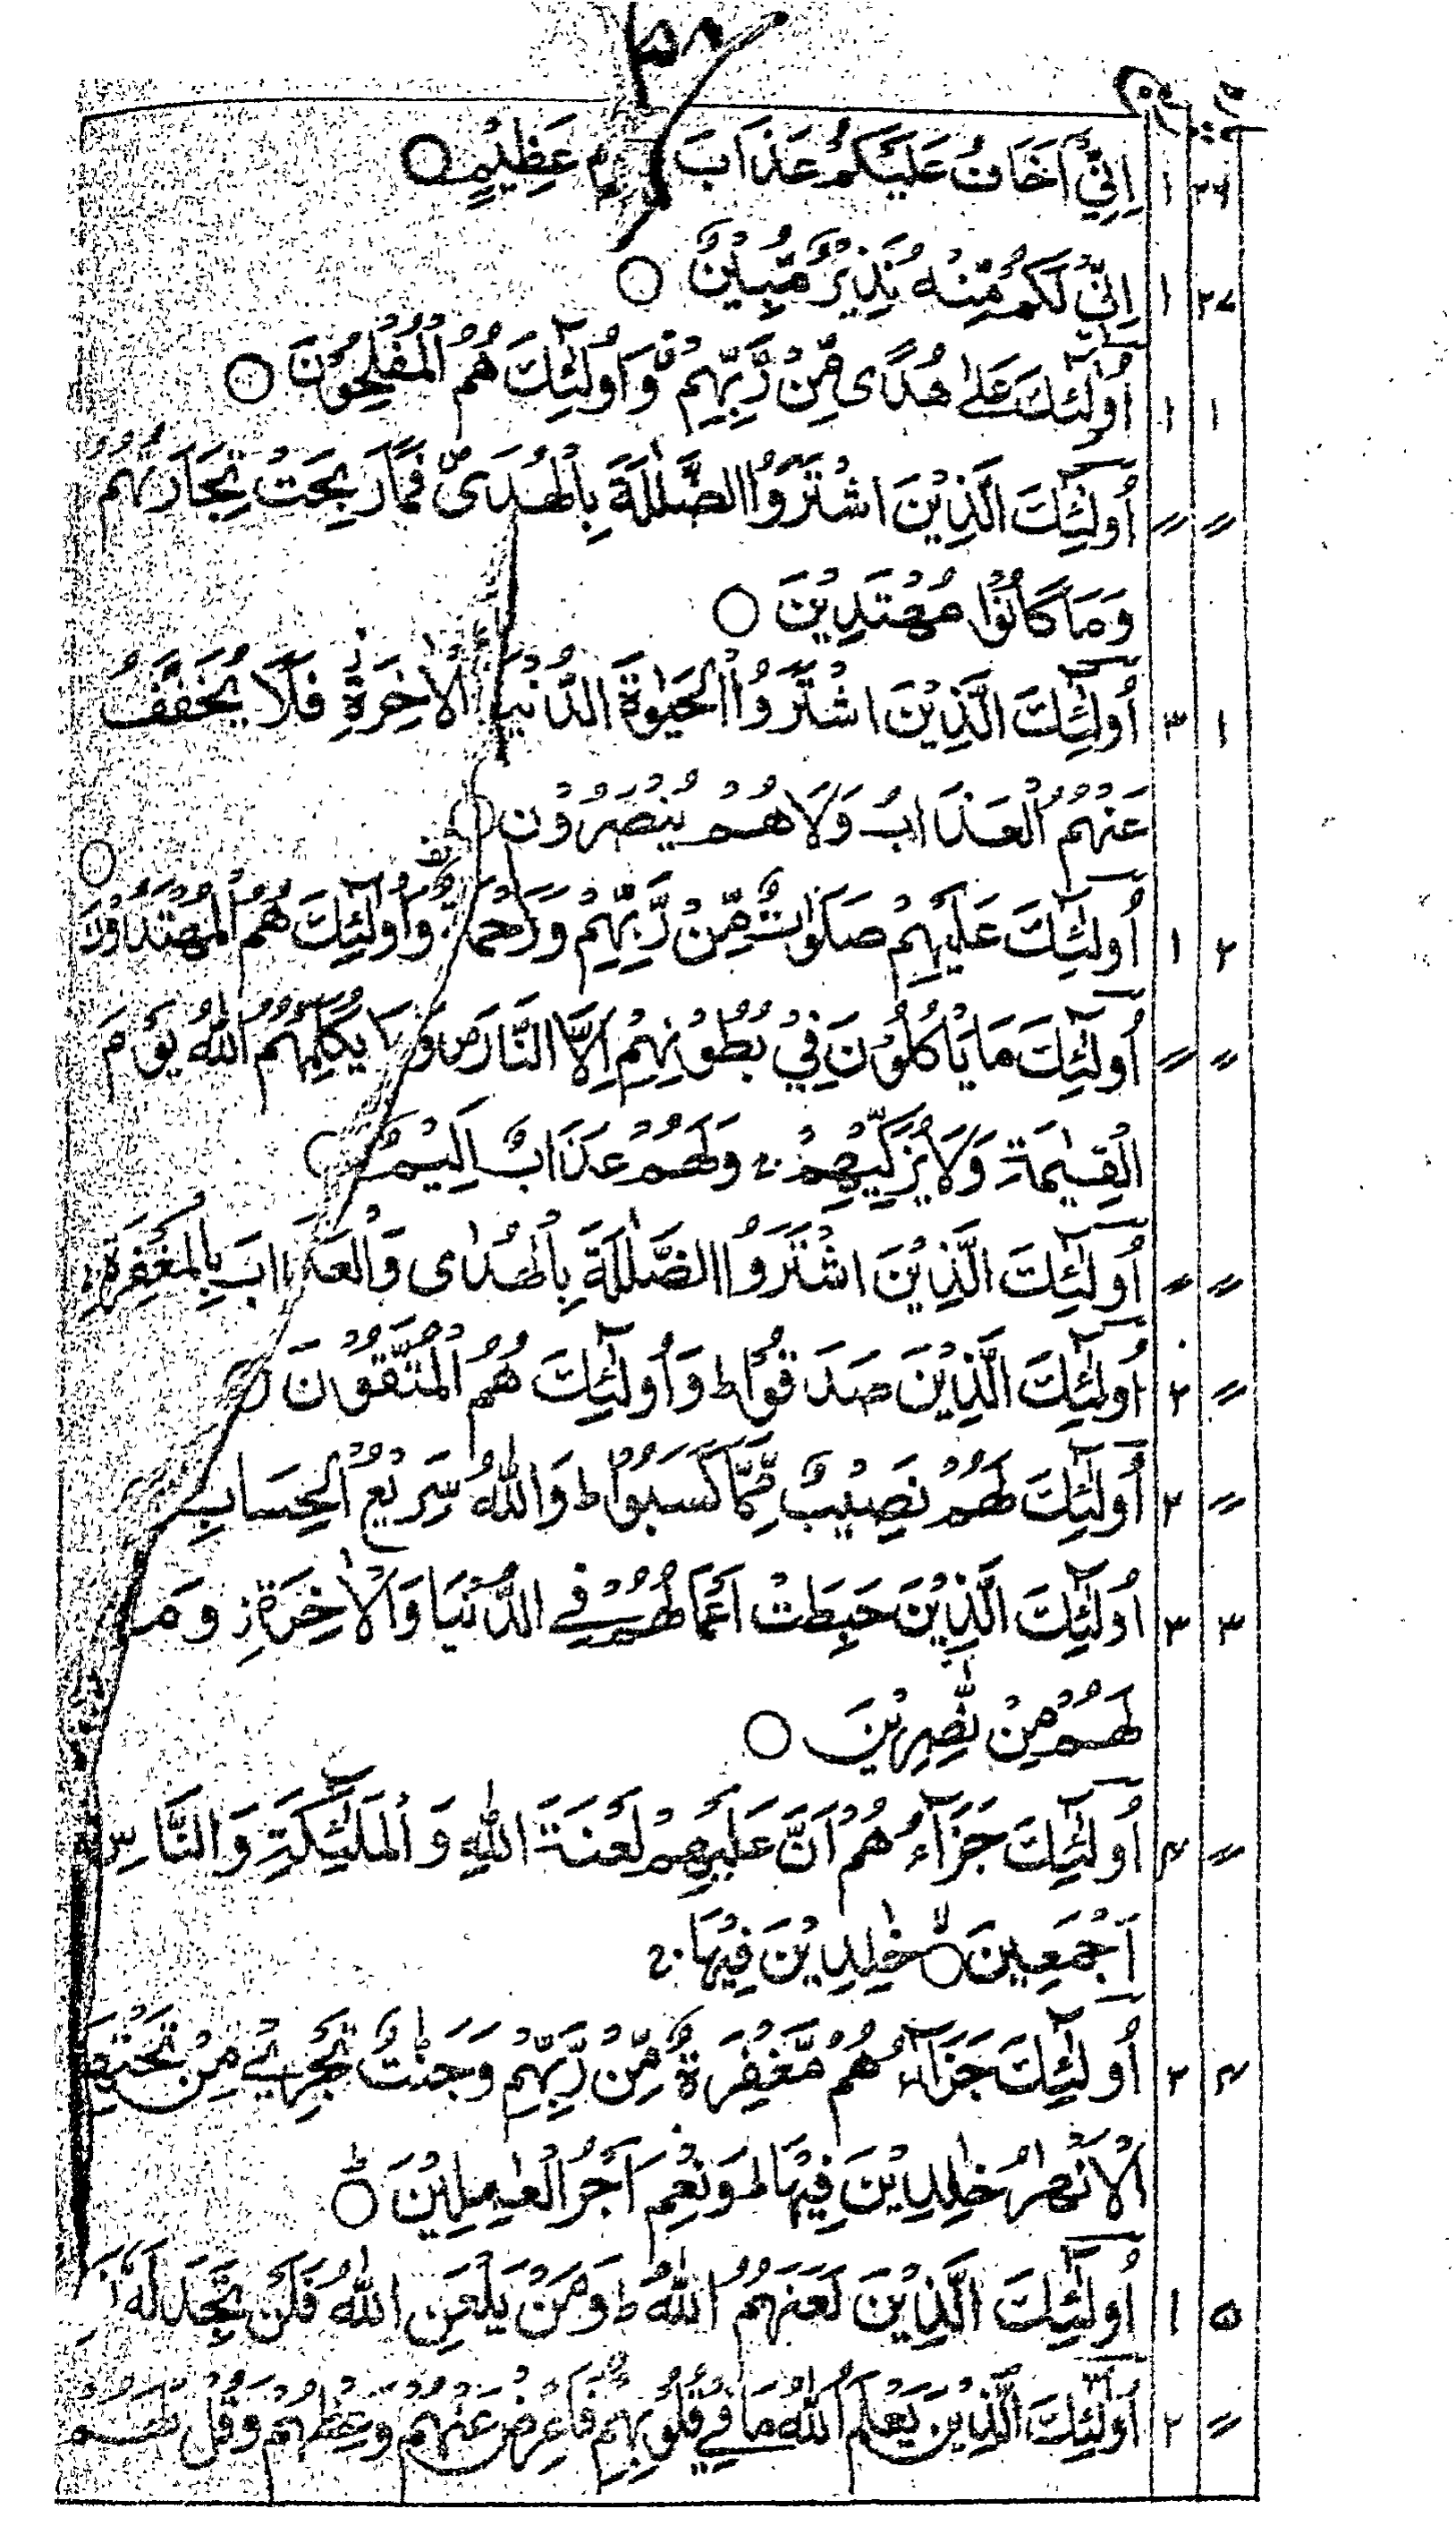 ۵۸
۲۶ ۱ اِنِّيْٓ اَخَافُ عَلَيْكُمْ عَذَابَ عَظِيْمٍ ○
۲۷ ۱ اِنِّيْ لَكُمْ مِّنْهُ نَذِيْرٌ مُّبِيْنٌ ○
۱ ۱ اُولٰٓئِكَ عَلٰى هُدًى مِّنْ رَّبِّهِمْ وَاُولٰٓئِكَ هُمُ الْمُفْلِحُوْنَ ○
〃 〃 اُولٰٓئِكَ الَّذِيْنَ اشْتَرَوُا الضَّلٰلَةَ بِالْهُدٰى فَمَا رَبِحَتْ تِّجَارَتُهُمْ
وَمَا كَانُوْا مُهْتَدِيْنَ ○
۱ ۳ اُولٰٓئِكَ الَّذِيْنَ اشْتَرَوُا الْحَيٰوةَ الدُّنْيَا الْاٰخِرَةِ فَلَا يُخَفَّفُ
عَنْهُمُ الْعَذَابُ وَلَا هُمْ يُنْصَرُوْنَ ○
۲ ۱ اُولٰٓئِكَ عَلَيْهِمْ صَلَوٰتٌ مِّنْ رَّبِّهِمْ وَرَحْمَةٌ وَاُولٰٓئِكَ هُمُ الْمُهْتَدُوْنَ ○
〃 〃 اُولٰٓئِكَ مَا يَاْكُلُوْنَ فِيْ بُطُوْنِهِمْ اِلَّا النَّارَ وَلَا يُكَلِّمُهُمُ اللّٰهُ يَوْمَ
الْقِيٰمَةِ وَلَا يُزَكِّيْهِمْ ۚ وَلَهُمْ عَذَابٌ اَلِيْمٌ ○
〃 〃 اُولٰٓئِكَ الَّذِيْنَ اشْتَرَوُا الضَّلٰلَةَ بِالْهُدٰى وَالْعَذَابَ بِالْمَغْفِرَةِ ۚ
〃 ۲ اُولٰٓئِكَ الَّذِيْنَ صَدَقُوْا ط وَاُولٰٓئِكَ هُمُ الْمُتَّقُوْنَ ○
〃 ۲ اُولٰٓئِكَ لَهُمْ نَصِيْبٌ مِّمَّا كَسَبُوْا ط وَاللّٰهُ سَرِيْعُ الْحِسَابِ
۳ ۳ اُولٰٓئِكَ الَّذِيْنَ حَبِطَتْ اَعْمَالُهُمْ فِي الدُّنْيَا وَالْاٰخِرَةِ ز وَمَا
لَهُمْ مِّنْ نّٰصِرِيْنَ ○
〃 ۴ اُولٰٓئِكَ جَزَآءُ هُمْ اَنَّ عَلَيْهِمْ لَعْنَةَ اللّٰهِ وَالْمَلٰٓئِكَةِ وَالنَّاسِ
اَجْمَعِيْنَ ○ۙ خٰلِدِيْنَ فِيْهَا ۚ
۴ ۲ اُولٰٓئِكَ جَزَآءُ هُمْ مَّغْفِرَةٌ مِّنْ رَّبِّهِمْ وَجَنّٰتٌ تَجْرِيْ مِنْ تَحْتِهَا
الْاَنْهٰرُ خٰلِدِيْنَ فِيْهَا ط وَنِعْمَ اَجْرُ الْعٰمِلِيْنَ ○ؕ
۵ ۱ اُولٰٓئِكَ الَّذِيْنَ لَعَنَهُمُ اللّٰهُ ط وَمَنْ يَّلْعَنِ اللّٰهُ فَلَنْ تَجِدَ لَهٗ
〃 ۲ اُولٰٓئِكَ الَّذِيْنَ يَعْلَمُ اللّٰهُ مَا فِيْ قُلُوْبِهِمْ فَاَعْرِضْ عَنْهُمْ وَعِظْهُمْ وَقُلْ لَّهُمْ